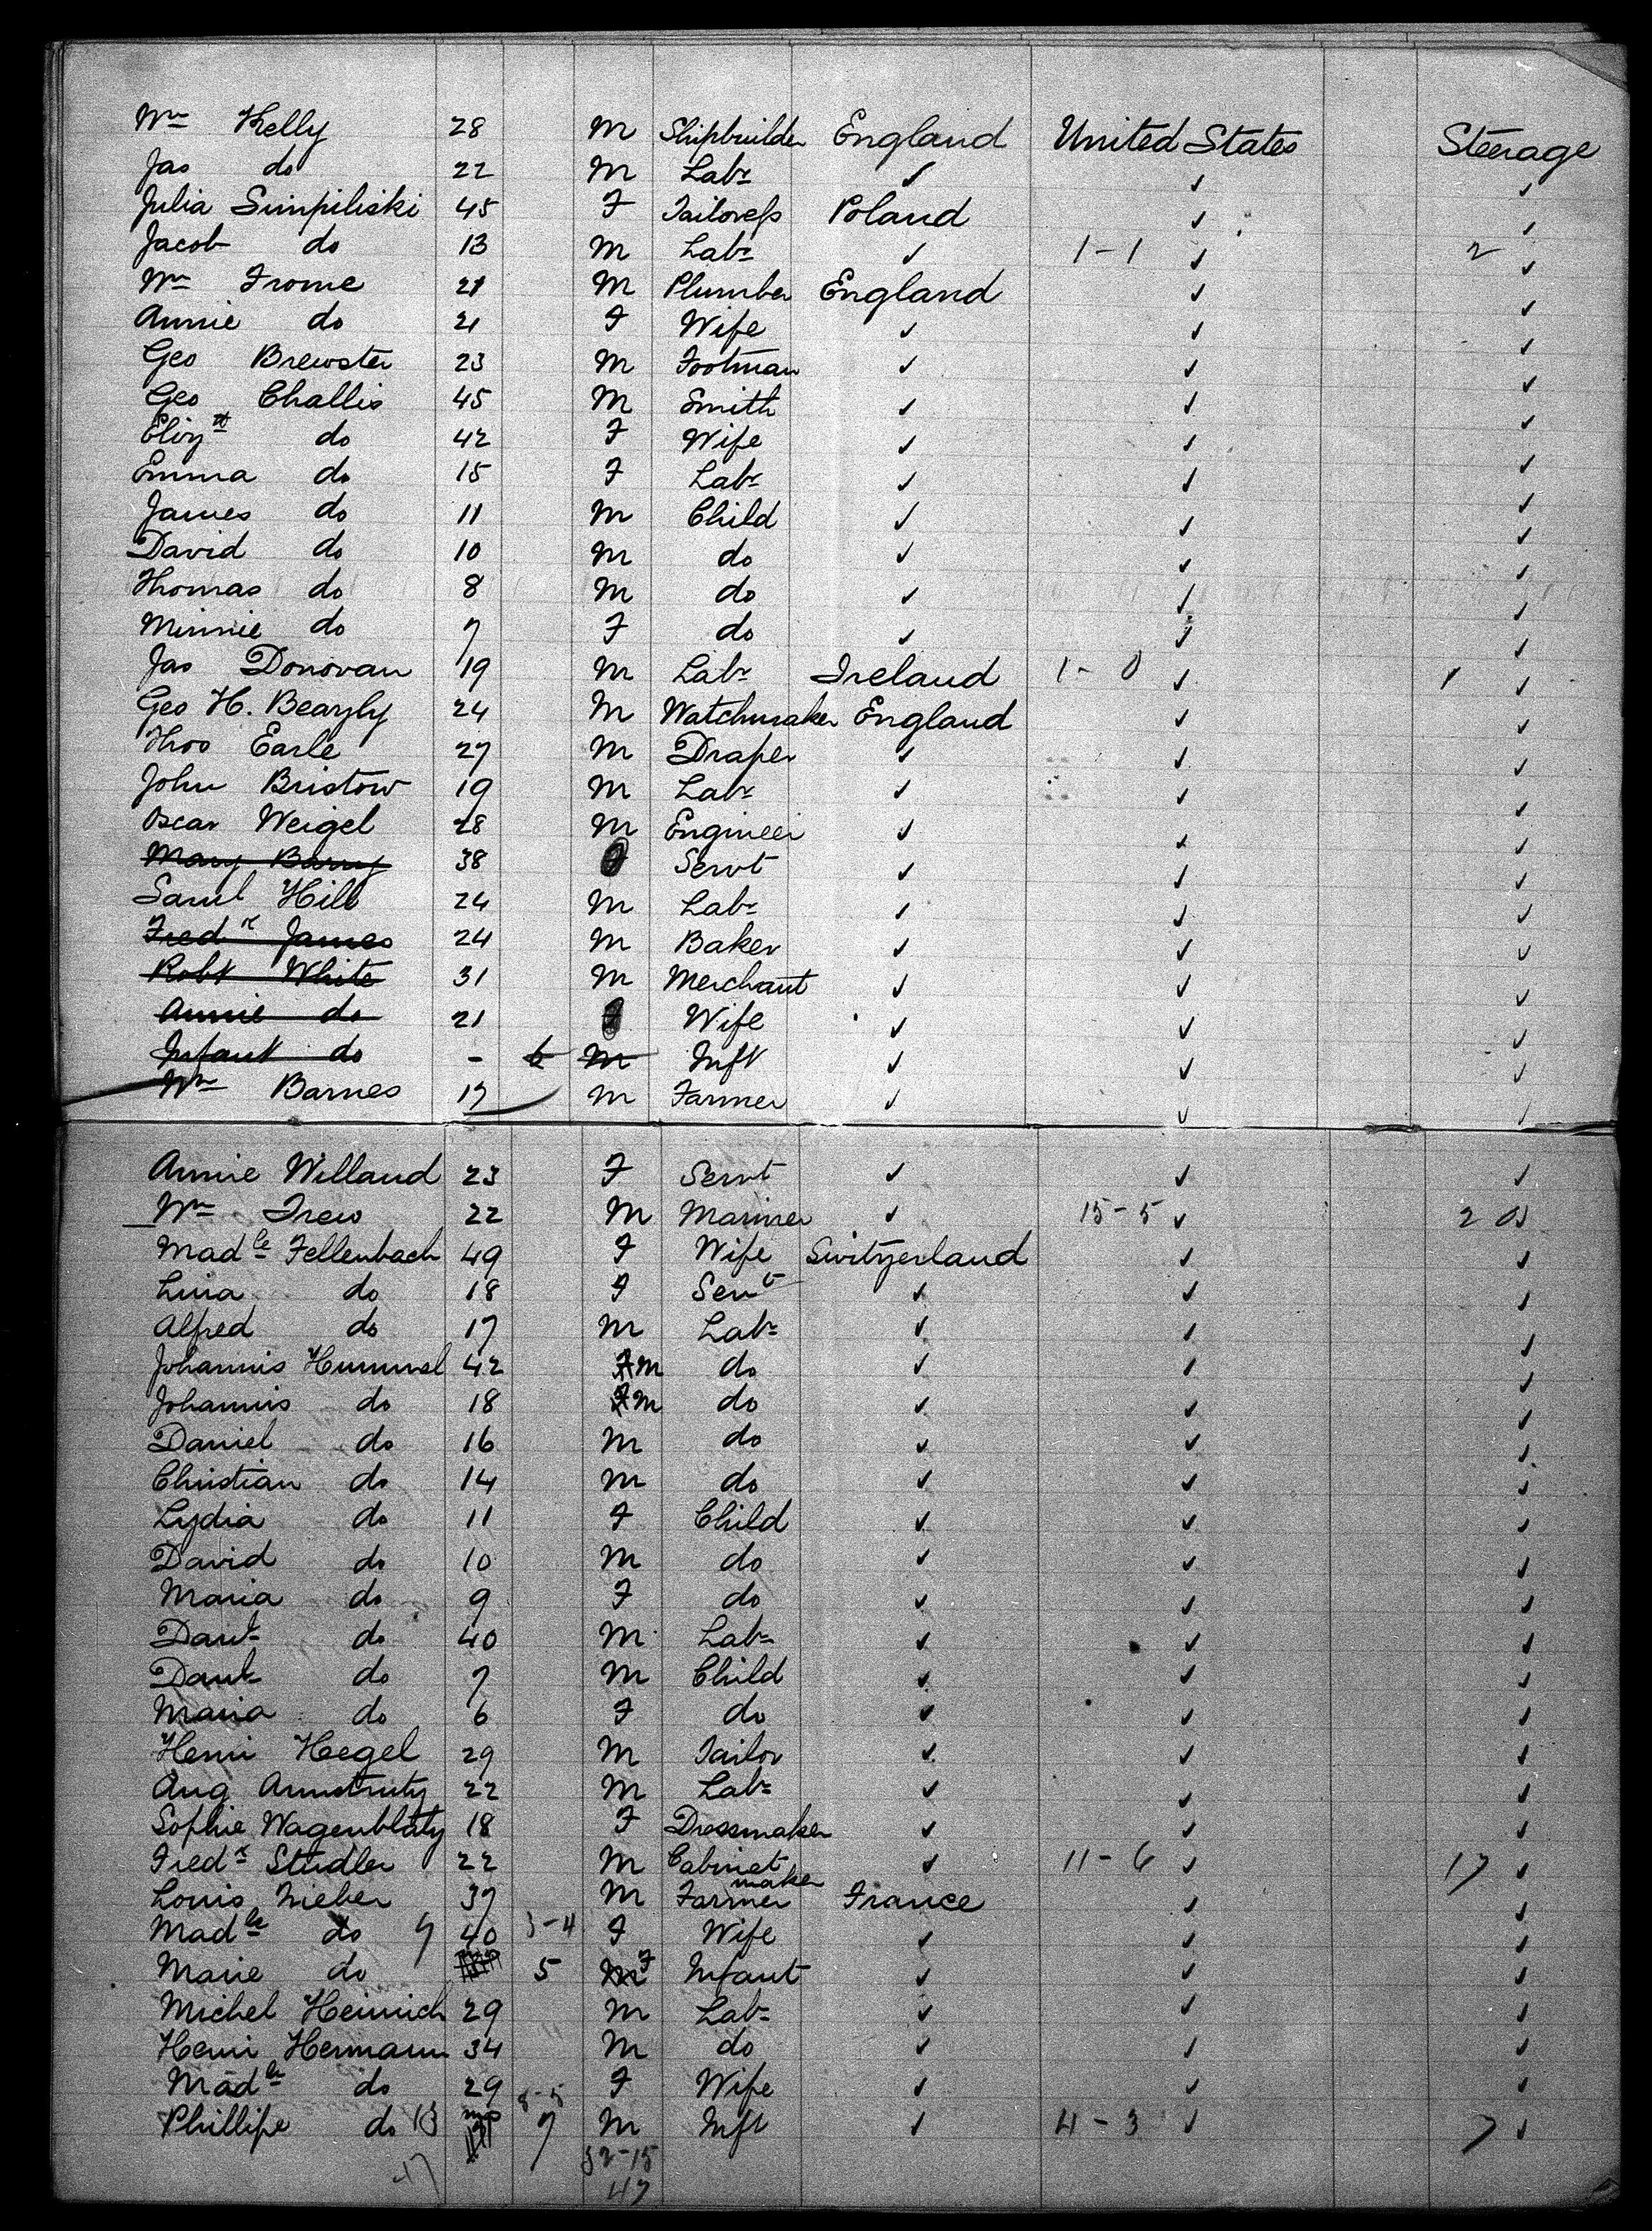 Wm Kelly 28 M Shipbuilder England United States Steerage
Jas do 22 M Labr ✓ ✓ ✓
Julia Simpiliski 45 F Tailoress Poland ✓ ✓
Jacob do 13 M Labr ✓ 1-1 ✓ 2 ✓
Wm Frome 21 M Plumber England ✓ ✓
Annie do 21 F Wife ✓ ✓ ✓
Geo Brewster 23 M Footman ✓ ✓ ✓
Geo Challis 45 M Smith ✓ ✓ ✓
Elizth do 42 F Wife ✓ ✓ ✓
Emma do 15 F Labr ✓ ✓ ✓
James do 11 M Child ✓ ✓ ✓
David do 10 M do ✓ ✓ ✓
Thomas do 8 M do ✓ ✓ ✓
Minnie do 7 F do ✓ ✓ ✓
Jas Donovan 19 M Labr Ireland 1-0 ✓ 1 ✓
Geo H. Beazly 24 M Watchmaker England ✓ ✓
Thos Earle 27 M Draper ✓ ✓ ✓
John Bristow 19 M Labr ✓ ✓ ✓
Oscar Weigel 28 M Engineer ✓ ✓ ✓
Mary Barry 38 F Servt ✓ ✓ ✓
Saml Hill 24 M Labr ✓ ✓ ✓
Fredk James 24 M Baker ✓ ✓ ✓
Robt White 31 M Merchant ✓ ✓ ✓
Annie do 21 F Wife ✓ ✓ ✓
Infant do - 6 M Inft ✓ ✓ ✓
Wm Barnes 17 M Farmer ✓ ✓ ✓
Annie Willand 23 F Servt ✓ ✓ ✓
Wm Trew 22 M Mariner ✓ 15-5 ✓ 20 ✓
Madle Fellenbach 49 F Wife Switzerland ✓ ✓
Lina do 18 F Servt ✓ ✓ ✓
Alfred do 17 M Labr ✓ ✓ ✓
Johannis Hummel 42 F M do ✓ ✓ ✓
Johannis do 18 F M do ✓ ✓ ✓
Daniel do 16 M do ✓ ✓ ✓
Christian do 14 M do ✓ ✓ ✓
Lydia do 11 F Child ✓ ✓ ✓
David do 10 M do ✓ ✓ ✓
Maria do 9 F do ✓ ✓ ✓
Danl do 40 M Labr ✓ ✓ ✓
Danl do 7 M Child ✓ ✓ ✓
Maria do 6 F do ✓ ✓ ✓
Henri Hegel 29 M Tailor ✓ ✓ ✓
Aug 22 M Labr ✓ ✓ ✓
Sophie Wagenblatz 18 F Dressmaker ✓ ✓ ✓
Fredk Studler 22 M Cabinet maker ✓ 11-6 ✓ 17 ✓
Louis Nieber 37 M Farmer France ✓ ✓
Madle do 40 3-4 F Wife ✓ ✓ ✓
Marie do 5 M F Infant ✓ ✓ ✓
Michel Heinrich 29 M Labr ✓ ✓ ✓
Henri Hermann 34 M do ✓ ✓ ✓
Madle do 29 8-5 F Wife ✓ ✓ ✓
Phillipe do 13 mos 7 M Inft ✓ 4-3 ✓ 7 ✓
47 32-15
47